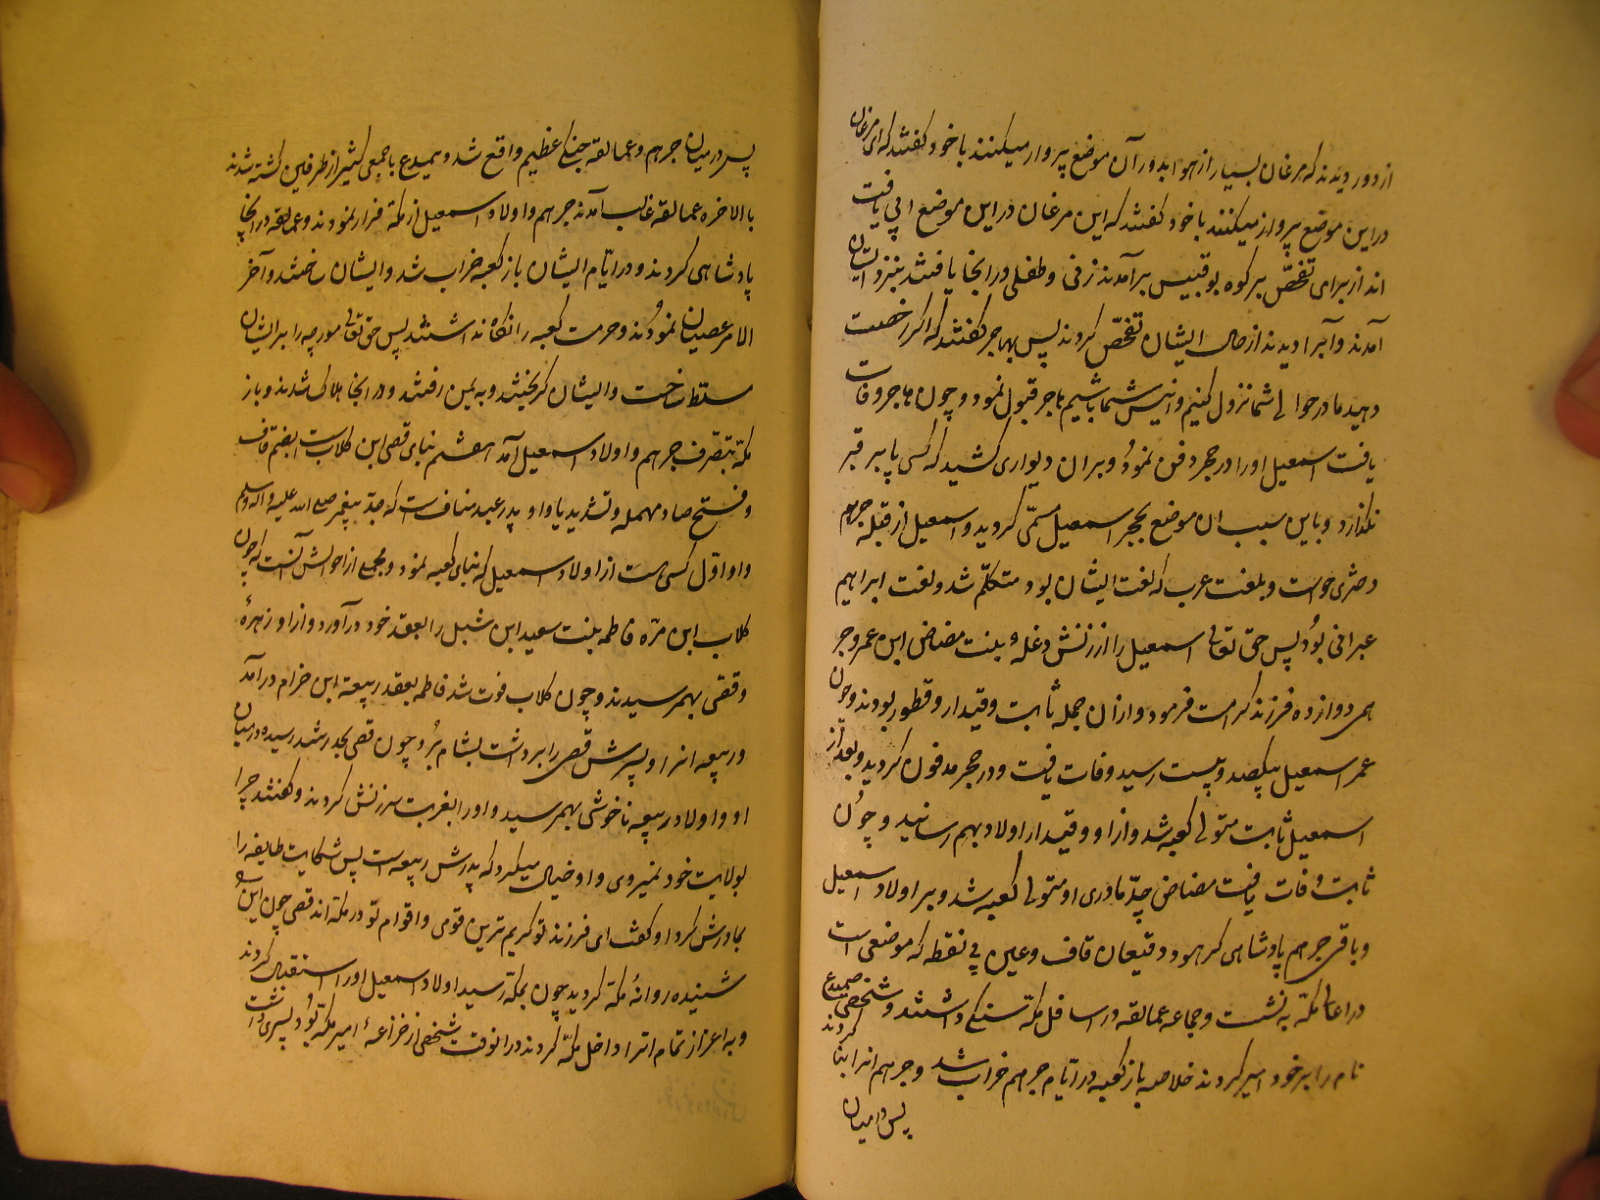 از دور دیدند که مرغان بسیار از هوا بدور آن موضع پرواز میکنند با خود گفتند که ای مرغان
در این موضع پرواز میکنند با خود گفتند که این مرغان در این موضع ابی یافت
اند از برای تفحّص بر کوه بوقبیس برآمدند زنی و طفلی در انجا یافتند بنزد ایشان
آمدند و آبرا دیدند از حال ایشان تفحّص کردند پس بهاجر گفتند که اگر رخصت
دهید ما در حوالی شما نزول کنیم و انیس شما باشیم هاجر قبول نمود و چون هاجر وفات
یافت اسمعیل او را در حجر دفن نمود و بران دیواری کشید که کسی پا بر قبر
نگذارد و باین سبب ان موضع بحجر اسمعیل مسمّی گردید و اسمعیل از قبیله جرهم
دختری خواست و بلغت عرب که لغت ایشان بود متکلّم شد و لغت ابراهیم
عبرانی بود پس حق تعالی اسمعیل را از زنش دغله بنت مضاض ابن عمرو جر
همی دوازده فرزند کرامت فرمود و از ان جمله ثابت و قیدار و قطور بودند و چون
عمر اسمعیل بیکصد و بیست رسید وفات یافت و در حجر مدفون گردید و بعد از
اسمعیل ثابت متولی کعبه شد و از او و قیدار اولاد بهم رسانید و چون
ثابت وفات یافت مضاض جدّ مادری او متولی کعبه شد و بر اولاد اسمعیل
و باقی جرهم پادشاهی کرد و در قیعان قاف و عین بی نقطه که موضعی است
در اعالی مکه بنشست و جماعه عمالقه در اسافل مکه سنگی داشتند و شخصی صمیدع
نام را بر خود امیر کردند خلاصه باز کعبه در ایّام جرهم خراب شد و جرهم انرا بنا کردند
پس در میان
پس در میان جرهم و عمالقه جنگی عظیم واقع شد و صمیدع با جمعی کثیر از طرفین کشته شدند
بالاخره عمالقه غالب آمدند جرهم و اولاد اسمعیل از مکه فرار نمودند و عمالقه در انجا
پادشاهی کردند و در ایّام ایشان باز کعبه خراب شد و ایشان ساختند و آخر
الامر عصیان نمودند و حرمت کعبه را نگاه نداشتند پس حق تعالی مورچه را بر ایشان
مسلط ساخت و ایشان گریختند و به یمن رفتند و در انجا هلاک شدند و باز
مکه بتصرّف جرهم و اولاد اسمعیل آمد هشتم بنای قصی ابن کلاب است بضم قاف
و فتح صاد مهمله و تشدید یا و او پدر عبد مناف است که جدّ پیغمبر صلی الله علیه و اله وسلم
و او اوّل کسی است از اولاد اسمعیل که بنای کعبه نمود و مجملی از احوالش آنست که چون
کلاب ابن مرّه فاطمه بنت سعید ابن شبل را بعقد خود درآورد و از او زهره
و قصی بهمرسیدند و چون کلاب فوت شد فاطمه بعقد ربیعة ابن خزام درآمد
و ربیعه انرا و پسرش قصی را برداشت بشام برد و چون قصی بحد رشد رسید در میان
او و اولاد ربیعه ناخوشی بهمرسید و او را بغربت سرزنش کردند و گفتند چرا
بولایت خود نمیروی و او خیال میکرد که پدرش ربیعه است پس شکایت طایفه را
بمادرش کرد او گفت ای فرزند تو کریم ترین قومی و اقوام تو در مکه اند قصی چون این سخن
شنیده روانهٔ مکه گردید چون بمکه رسید اولاد اسمعیل او را استقبال کردند
و به اعزاز تمام انرا داخل مکّه کردند در انوقت شخصی از خزاعه امیر مکه بود پسری داشت